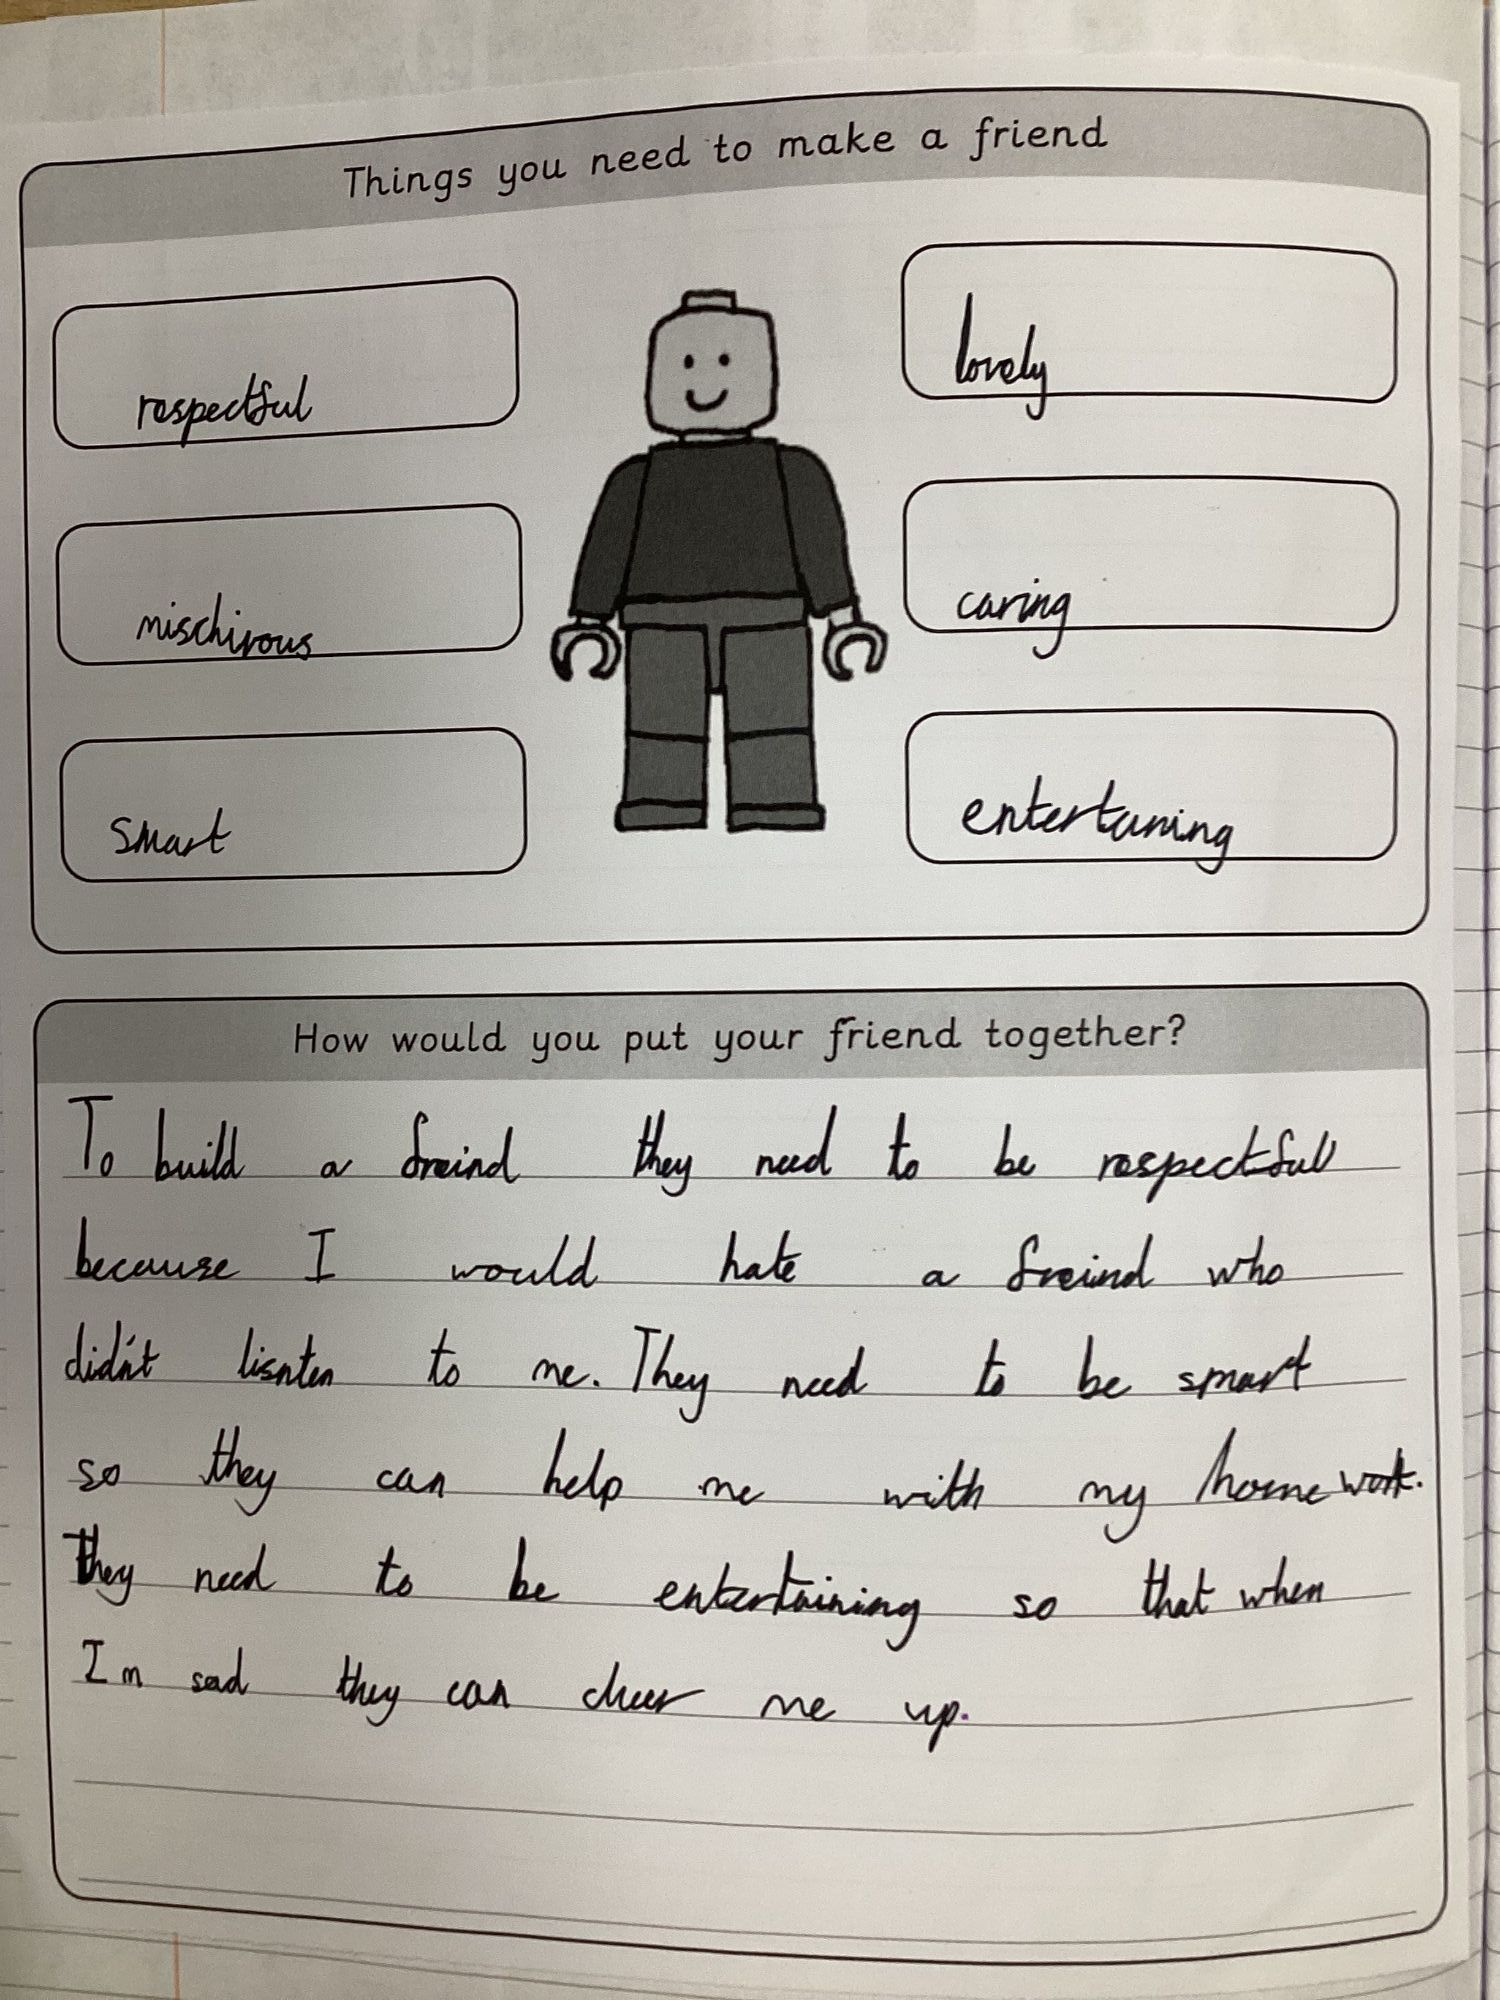 Things you need to make a friend
respectful
lovely
mischirous
caring
smart
entertaining
How would you put your friend together?
To build a freind they need to be respectfull
because I would hate a freind who
didn't lisnten to me. They need to be smart
so they can help me with my home work.
They need to be entertaining so that when
Im sad they can cheer me up.